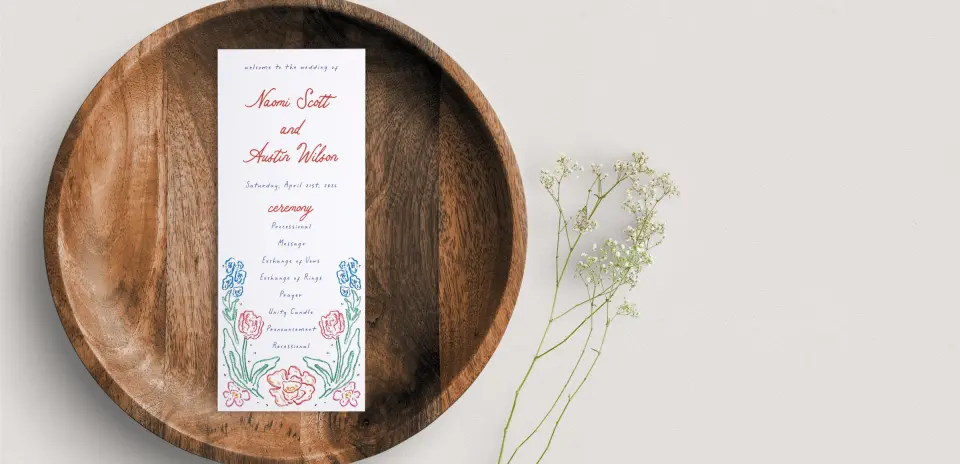 welcome to the wedding of
Naomi Scott
and
Austin Wilson
Saturday, April 21st, 2022
ceremony
Processional
Message
Exchange of Vows
Exchange of Rings
Prayer
Unity Candle
Pronouncement
Recessional